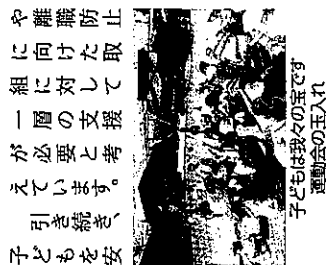 や離職防止
に向けた取
組に対して
一層の支援
が必要と考
えています。
引き続き、
子どもを安
子どもは我々の宝です
運動会の玉入れ